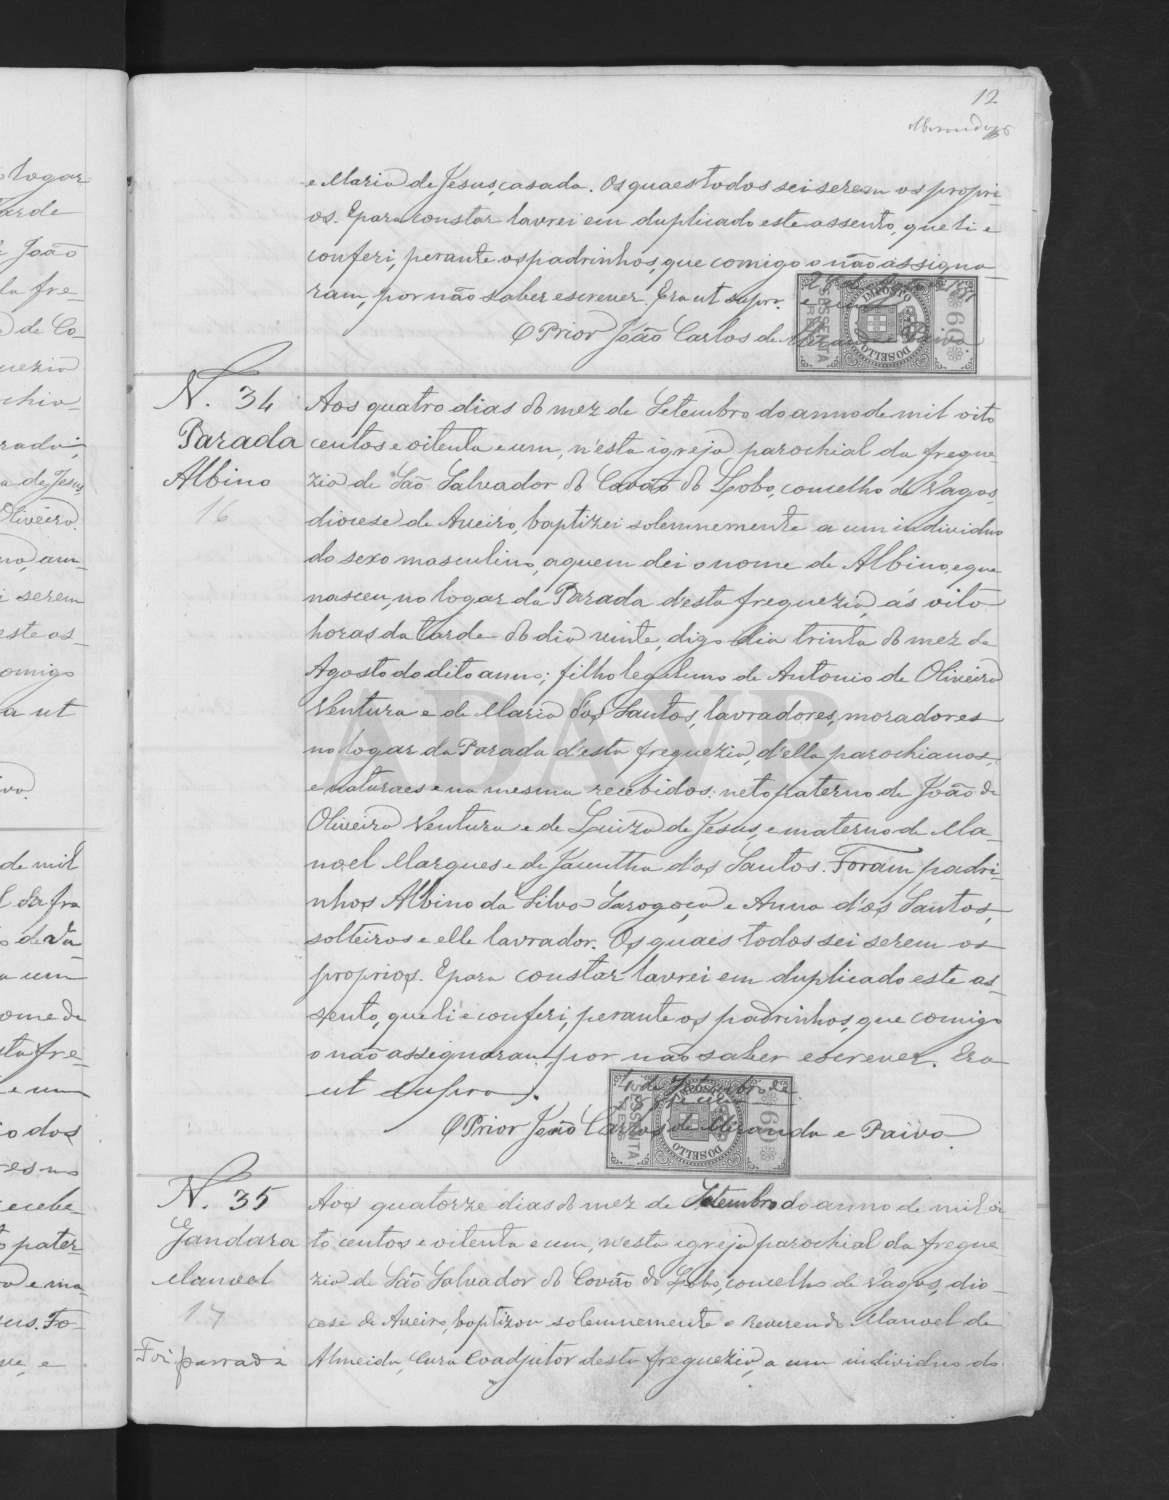 12
e Maria de Jesus, casada. Os quaes todos sei serem os propri-
os. E para constar lavrei em duplicado este assento, que li e
conferi, perante os padrinhos, que comigo o não assigna-
ram, por não saber escrever. Era ut supra.
O Prior João Carlos de Miranda e Paiva
IMPOSTO DO SELLO
SESSENTA REIS
60
N. 34
Parada
Albino
16
Aos quatro dias do mez de Setembro do anno de mil oito
centos e oitenta e um, n'esta igreja parochial da fregue-
zia de São Salvador do Covão do Lobo, concelho de Vagos,
diocese de Aveiro, baptizei solemnemente a um individuo
do sexo masculino, a quem dei o nome de Albino, e que
nasceu, no logar da Parada d'esta freguezia, ás oito
horas da tarde do dia vinte, digo dia trinta do mez de
Agosto do dito anno; filho legitimo de Antonio de Oliveira
Ventura e de Maria dos Santos, lavradores, moradores
no logar da Parada d'esta freguezia, d'ella parochianos,
e naturaes e na mesma recebidos: neto paterno de João de
Oliveira Ventura e de Luiza de Jesus, e materno de Ma-
noel Marques e de Jacintha dos Santos. Foram padri-
nhos Albino da Silva Sarogoça e Anna d'os Santos,
solteiros e elle lavrador. Os quaes todos sei serem os
proprios. E para constar lavrei em duplicado este as-
sento, que li e conferi, perante os padrinhos, que comigo
o não assignaram por não saber escrever. Era
ut supra.
4 de Setembro de
O Prior João Carlos de Miranda e Paiva
IMPOSTO DO SELLO
SESSENTA REIS
60
N. 35
Gandara
Manoel
17
Foi passada
Aos quatorze dias do mez de Setembro do anno de mil oi-
to centos e oitenta e um, n'esta igreja parochial da fregue
zia de São Salvador do Covão do Lobo, concelho de Vagos, dio-
cese de Aveiro, baptizou solemnemente o Reverendo Manoel de
Almeida, Cura Coadjutor desta freguezia, a um individuo do
ADAVR
logar
tarde
João
la fre-
de Co-
guezia
chia-
a de Jesus,
Oliveira.
serem
este as-
comigo
a ut
de mil
de Va-
a um
nome de
sta fre-
e um
o dos
recebe-
pater-
e ma-
sus. Fo-